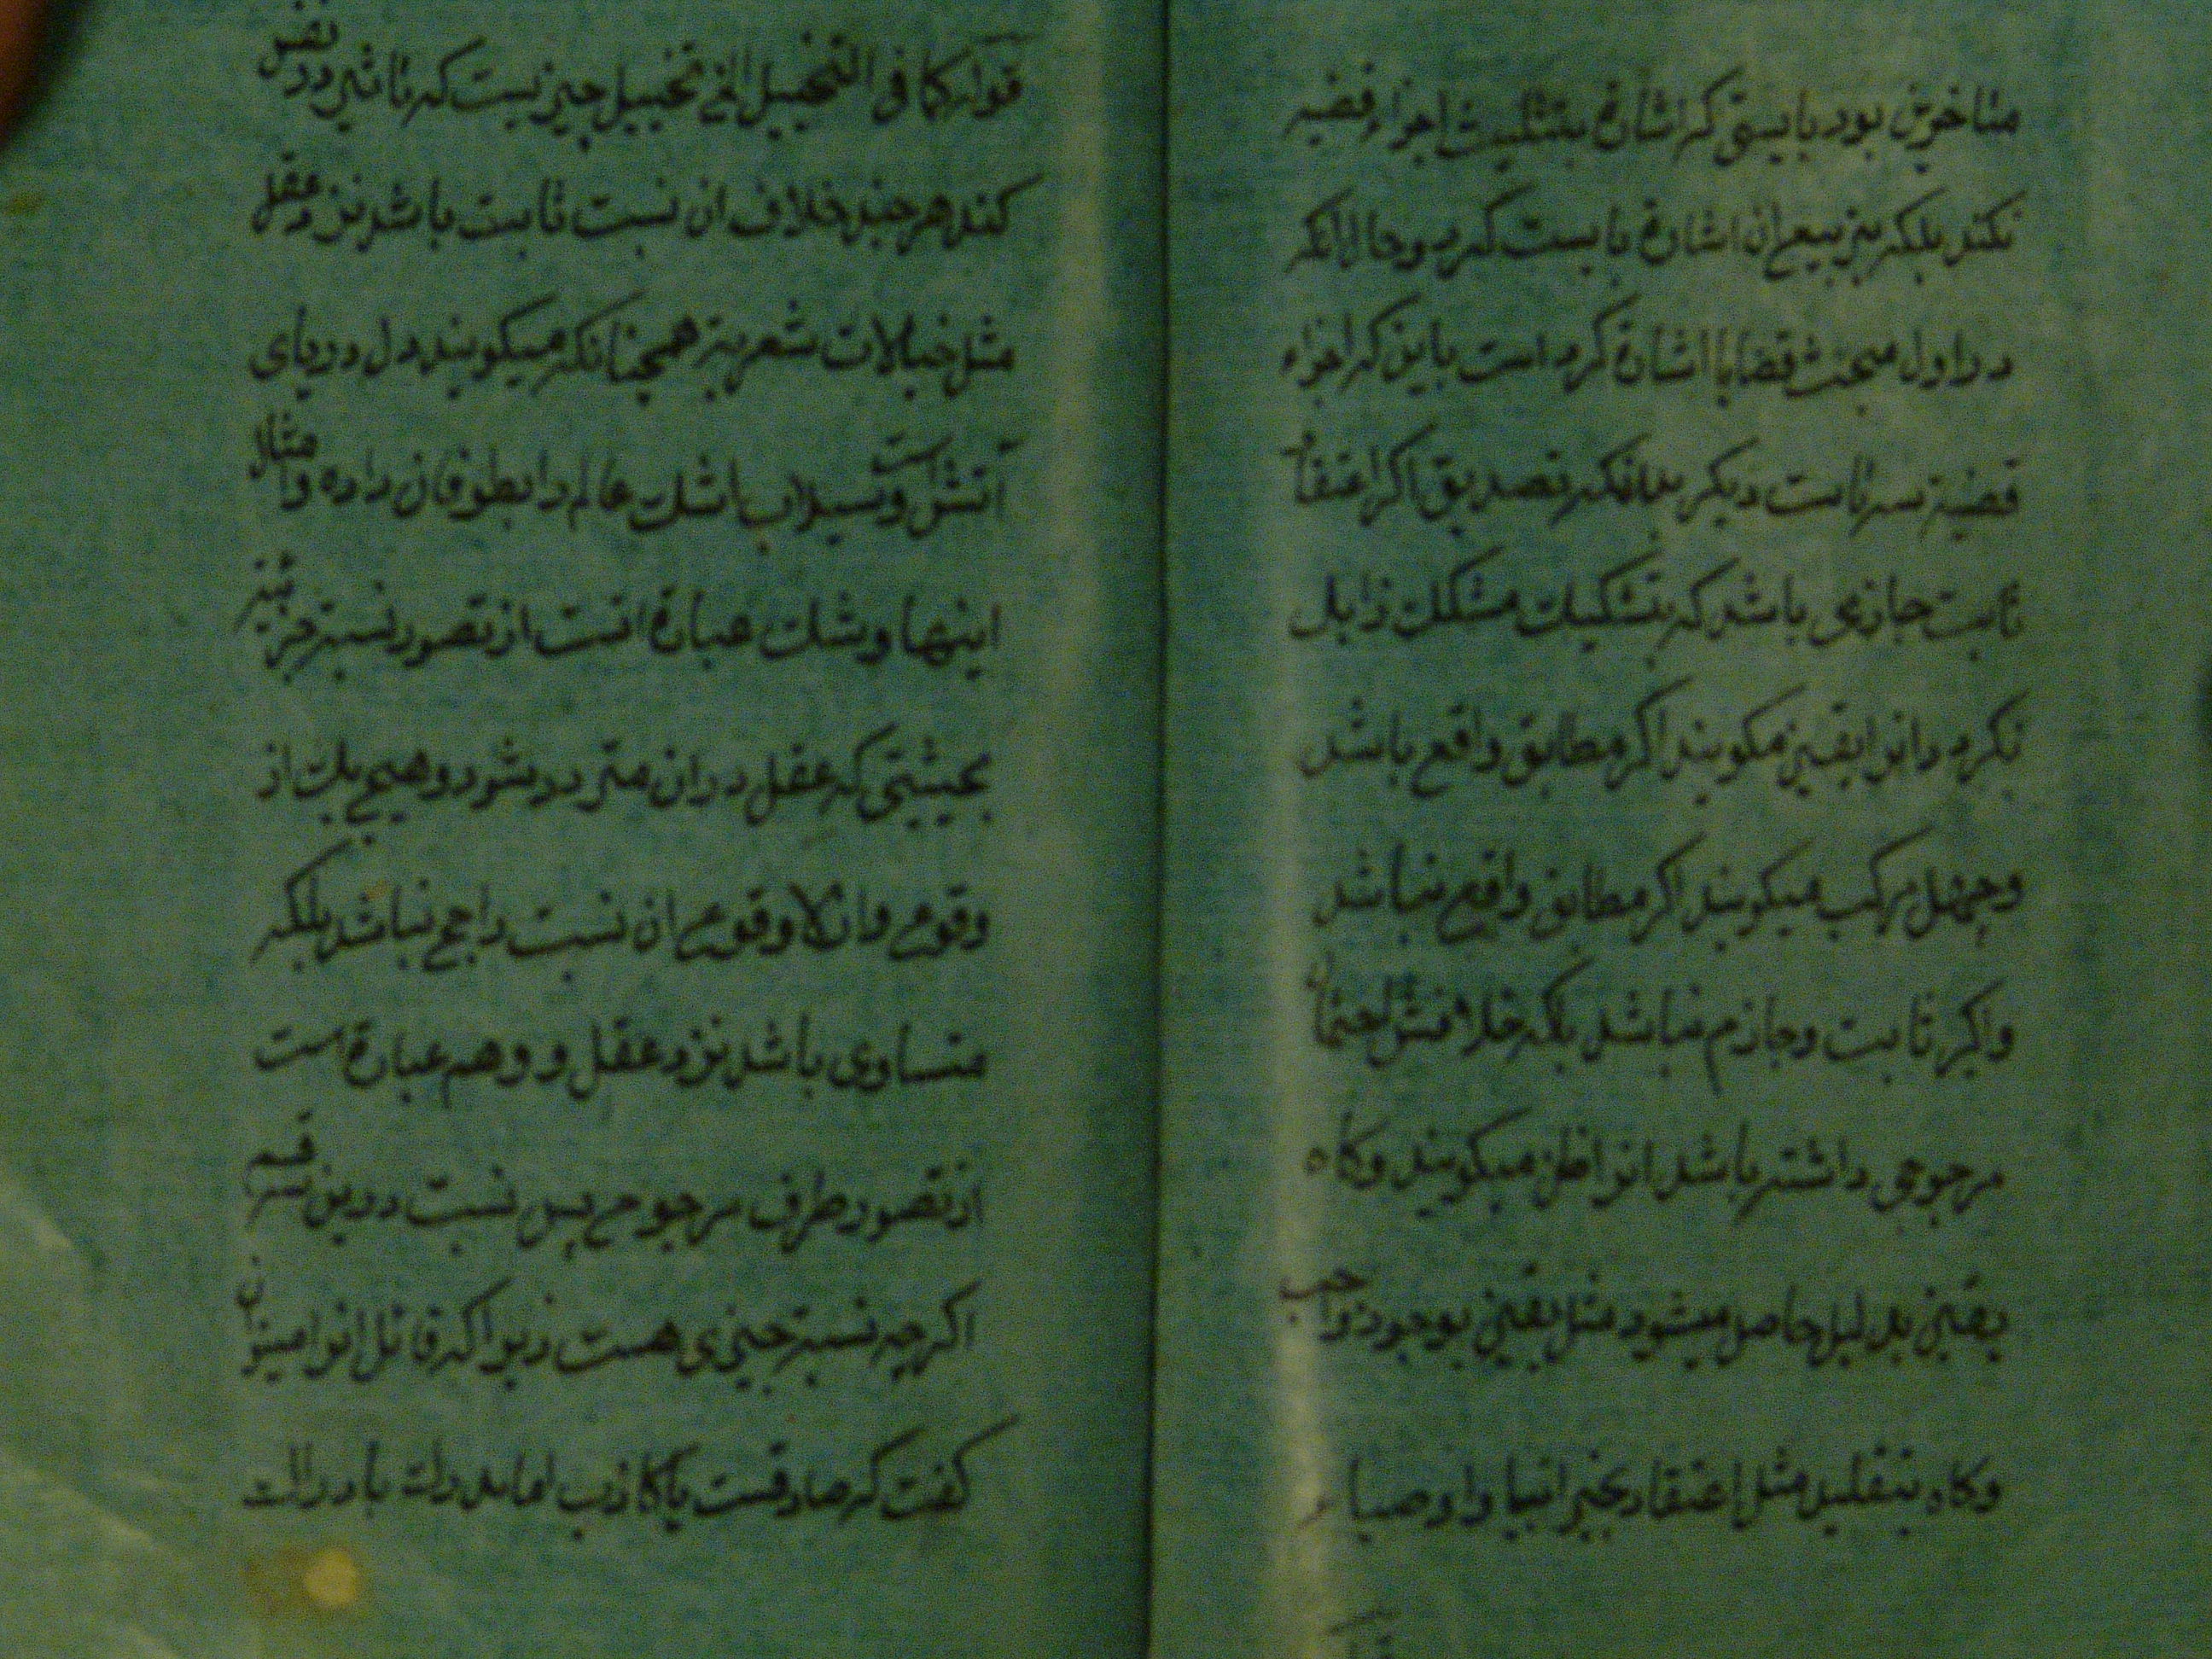 متاخرین بود بایستی که اشارة بتثلیث اجزاء قضیه
نکند بلکه بتربیع ان اشارة بایست کرد و حالانکه
در اول مبحث قضایا اشارة کرده است باین که اجزاء
قضیه سه تاست دیگر بدانکه تصدیق اگر اعتقاد
ثابت جازمی باشد که بتشکیك مشکك زایل
نکردد انرا یقین مکویند اکر مطابق واقع باشد
وجهل مرکب میکویند اکر مطابق واقع نباشد
واکر ثابت وجازم نباشد بلکه خلافش احتمال
مرجوحی داشته باشد انرا ظن میکویند وکاه
یقین بدلیل حاصل میشود مثل یقین بوجود واجب
وکاه بتقلید مثل اعتقاد بخبر انبیا واوصیا
قوله کما فی التخییل الخ تخییل چیزیست که تاثیر در نفس
کند هر چند خلاف ان نسبت ثابت باشد نزد عقل
مثل خیالات شعریه همچنانکه میکویند دل دریای
آتش است وسیلاب اشك عالم را بطوفان داده وامثال
اینها وشك عبارة است از تصور نسبة خبریه
بحیثیتی که عقل در ان متردد شود وهیچ یك از
وقوع ولا وقوع ان نسبت راجح نباشد بلکه
متساوی باشد نزد عقل و وهم عبارة است
از تصور طرف مرجوح پس نسبت در این سه قسم
اکرچه نسبة خبری هست زیرا که قائل انرا میتوان
کفت که صادقست یا کاذب اما